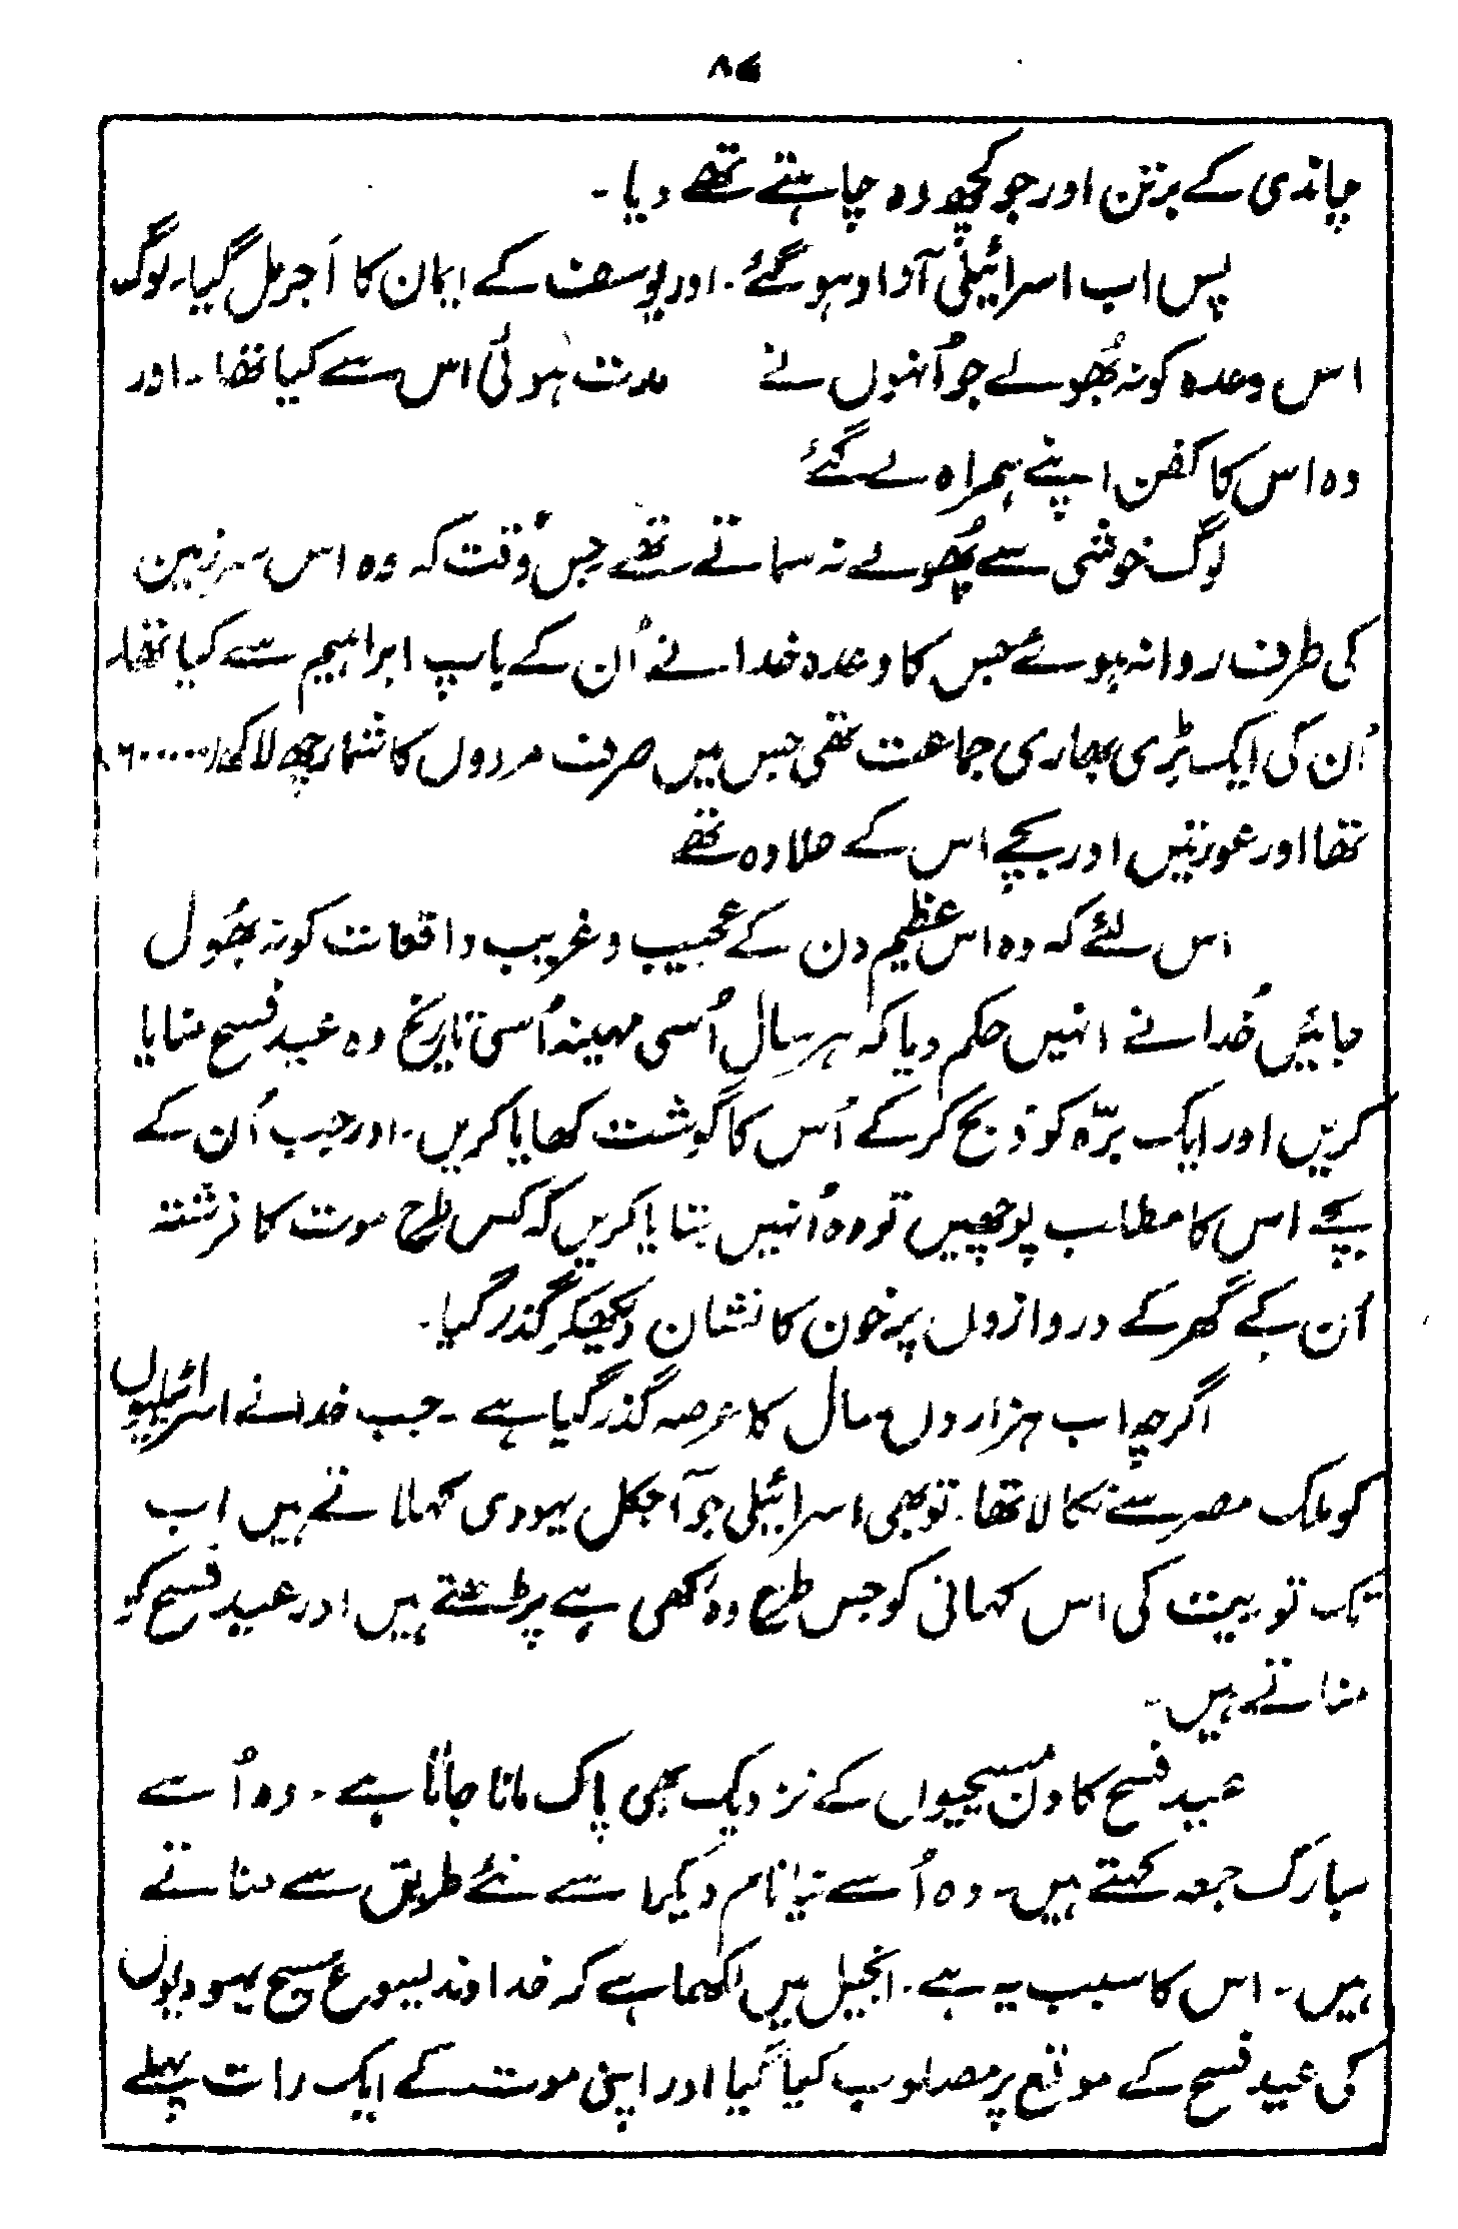 ۸۷
چاندی کے برتن اور جو کچھ وہ چاہتے تھے دیا۔
پس اب اسرائیلی آزاد ہو گئے۔ اور یوسف کے ایمان کا اَجر مل گیا۔ لوگ
اس وعدہ کو نہ بھُولے جو اُنہوں نے مدت ہوئی اس سے کیا تھا۔ اور
وہ اس کا کفن اپنے ہمراہ لے گئے
لوگ خوشی سے پھُولے نہ سماتے تھے جس وقت کہ وہ اس سرزمین
کی طرف روانہ ہوئے جس کا وعدہ خدا نے اُن کے باپ ابراہیم سے کیا تھا۔
اُن کی ایک بڑی بھاری جماعت تھی جس میں صرف مردوں کا شمار چھ لاکھ (۶۰۰۰۰۰)
تھا اور عورتیں اور بچے اس کے علاوہ تھے
اس لئے کہ وہ اس عظیم دن کے عجیب و غریب واقعات کو نہ بھُول
جائیں خُدا نے انہیں حکم دیا کہ ہر سال اُسی مہینہ اُسی تاریخ وہ عید فسح منایا
کریں اور ایک برّہ کو ذبح کر کے اُس کا گوشت کھایا کریں۔ اور جب اُن کے
بچے اس کا مطلب پوچھیں تو وہ اُنہیں بتایا کریں کہ کس طرح موت کا فرشتہ
اُن کے گھر کے دروازوں پر خون کا نشان دیکھکر گذر گیا۔
اگرچہ اب ہزاروں سال کا عرصہ گذر گیا ہے۔ جب خدا نے اسرائیلیوں
کو ملک مصر سے نکالا تھا۔ تو بھی اسرائیلی جو آجکل یہودی کہلاتے ہیں اب
تک توریت کی اس کہانی کو جس طرح وہ لکھی ہے پڑھتے ہیں اور عید فسح کو
مناتے ہیں۔
عید فسح کا دن مسیحیوں کے نزدیک بھی پاک مانا جاتا ہے۔ وہ اُسے
مبارک جمعہ کہتے ہیں۔ وہ اُسے نیا نام دیکر اسے نئے طریق سے مناتے
ہیں۔ اس کا سبب یہ ہے۔ انجیل میں لکھا ہے کہ خداوند یسوع مسیح یہودیوں
کی عید فسح کے موقع پر مصلوب کیا گیا اور اپنی موت کے ایک رات پہلے